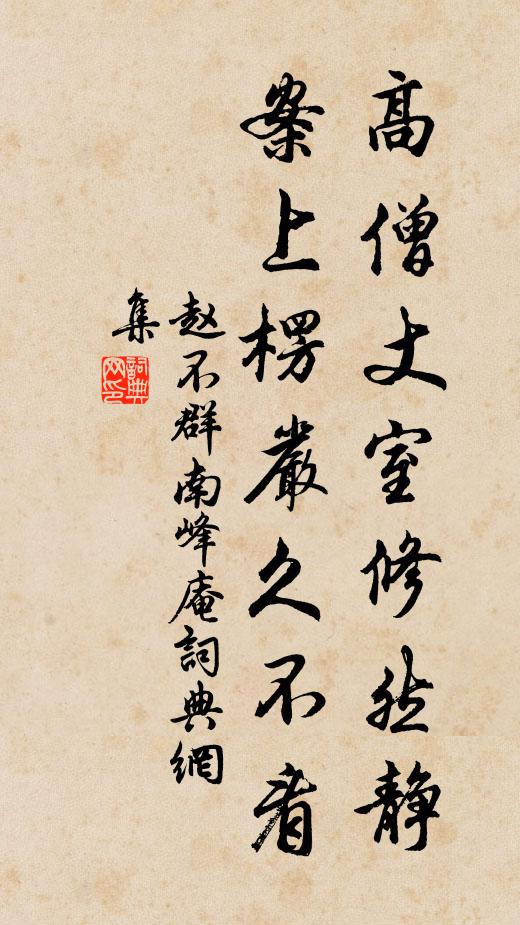 高僧丈室修然静
案上楞嚴久不看
赵不群南峰庵詞典網
集
詞典网印